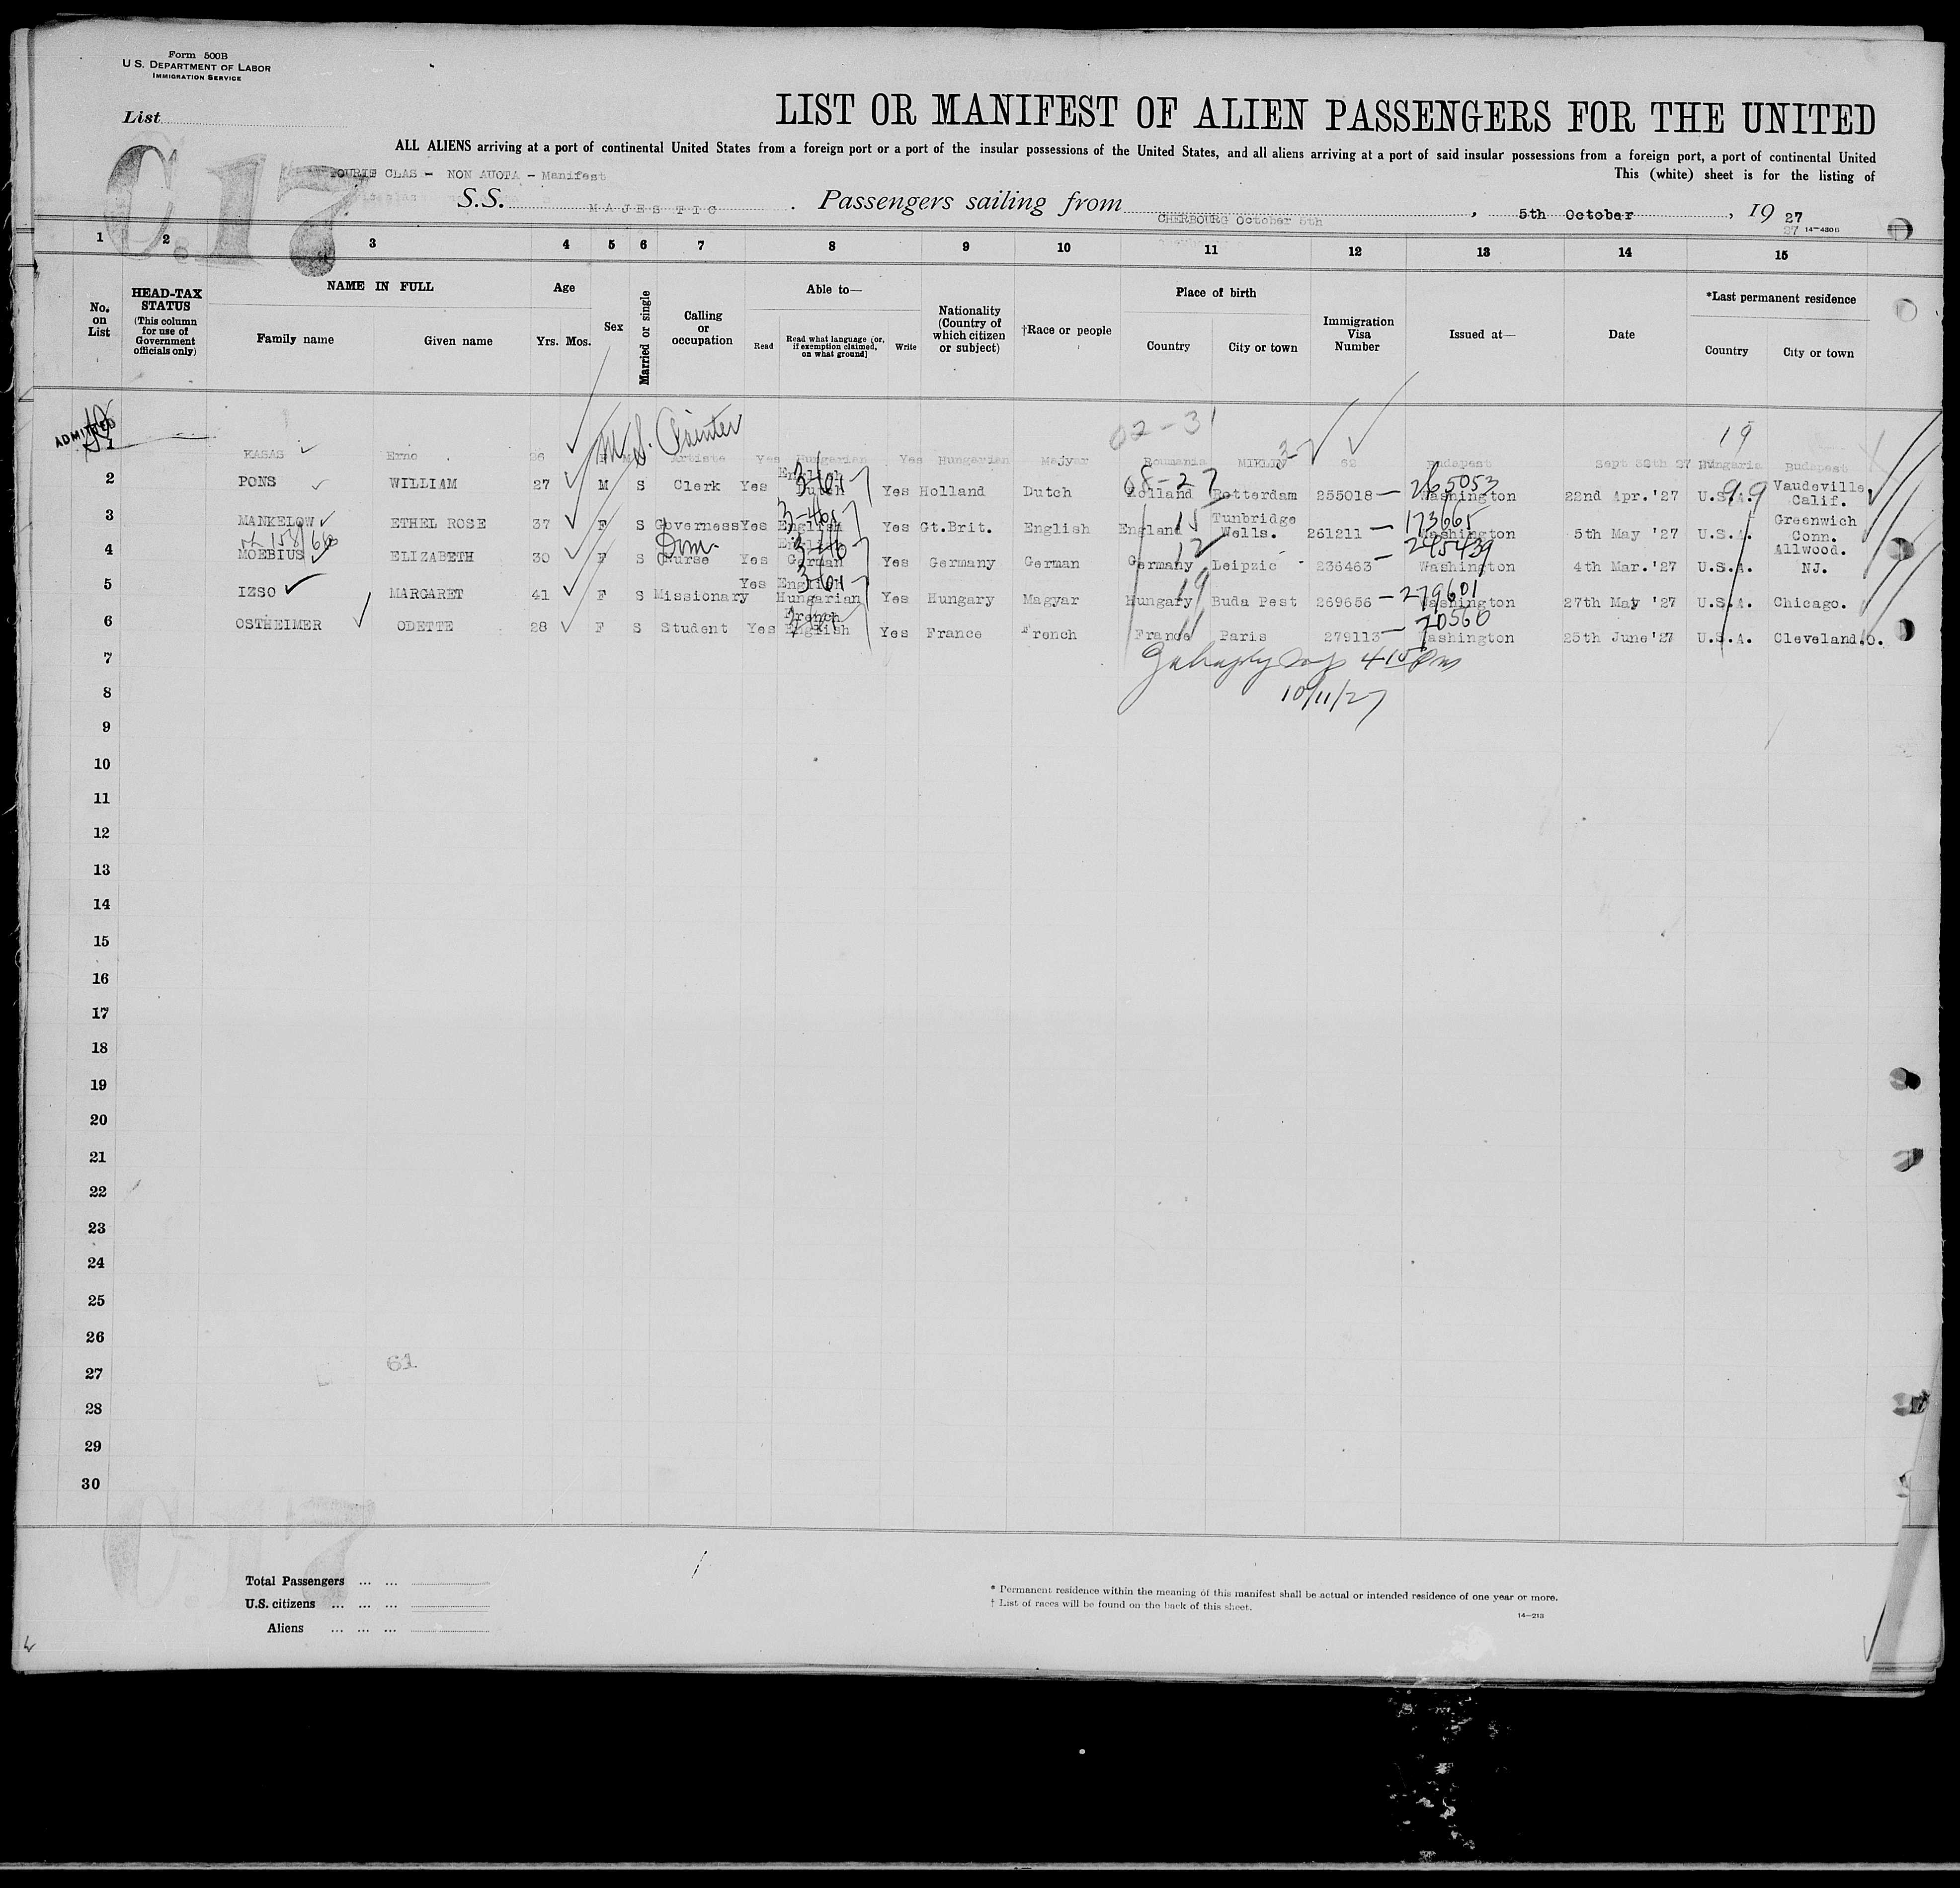 Form 500B
U.S. DEPARTMENT OF LABOR
IMMIGRATION SERVICE
List
C.17
LIST OR MANIFEST OF ALIEN PASSENGERS FOR THE UNITED
ALL ALIENS arriving at a port of continental United States from a foreign port or a port of the insular possessions of the United States, and all aliens arriving at a port of said insular possessions from a foreign port, a port of continental United
This (white) sheet is for the listing of
CLAS - NON AUOTA - Manifest
S.S. MAJESTIC . Passengers sailing from CHERBOURG October 5th , 5th October , 19 27
27 14-430B
1 2 3 4 5 6 7 8 9 10 11 12 13 14 15
No. on List
HEAD-TAX STATUS (This column for use of Government officials only)
NAME IN FULL
Family name Given name
Age
Yrs. Mos.
Sex
Married or single
Calling or occupation
Able to—
Read Read what language (or, if exemption claimed, on what ground) Write
Nationality (Country of which citizen or subject)
†Race or people
Place of birth
Country City or town
Immigration Visa Number
Issued at—
Date
*Last permanent residence
Country City or town
ADMITTED
M S. Painter 02-31 19
1 KASAS Erno 26 F M Artiste Yes Hungarian Yes Hungarian Majyar Roumania 62 Budapest Sept 27 Hungaria Budapest
2 PONS WILLIAM 27 M S Clerk Yes English Dutch Yes Holland Dutch Holland Rotterdam 255018 — 265053 Washington 22nd Apr.'27 U.S.A. 99 Vaudeville Calif.
3 MANKELOW ETHEL ROSE 37 F S Governess Yes English Yes Gt.Brit. English England 15 Tunbridge Wells. 261211 — 173665 Washington 5th May '27 U.S.A. Greenwich Conn.
4 MOEBIUS ELIZABETH 30 F S Dom. Nurse Yes English German Yes Germany German Germany 12 Leipzic 236463 — 245439 Washington 4th Mar.'27 U.S.A. Allwood. NJ.
5 IZSO MARGARET 41 F S Missionary Yes English Hungarian Yes Hungary Magyar Hungary 19 Buda Pest 269656 — 279601 Washington 27th May '27 U.S.A. Chicago.
6 OSTHEIMER ODETTE 28 F S Student Yes French English Yes France French France 11 Paris 279113 — 70560 Washington 25th June'27 U.S.A. Cleveland.O.
7
10/11/27
8
9
10
11
12
13
14
15
16
17
18
19
20
21
22
23
24
25
26
61
27
28
29
30
C.17
Total Passengers ... ...
U.S. citizens ... ... ...
Aliens ... ... ...
* Permanent residence within the meaning of this manifest shall be actual or intended residence of one year or more.
† List of races will be found on the back of this sheet.
14-213